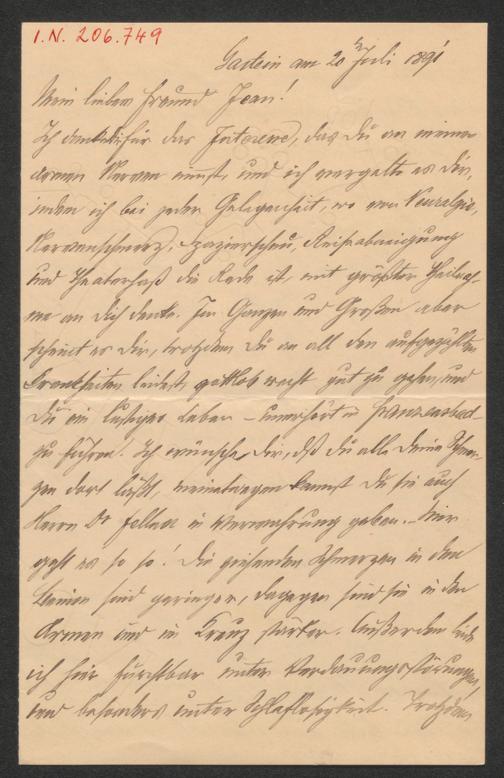 I.N. 206.749
Gastein am 20 Juli 1891
Mein lieber Freund Jean!
Ich danke für das Interesse, das Du an meinen
armen Nerven nimmst, und ich vergelte es Dir,
indem ich bei jeder Gelegenheit, wo von Neuralgie,
Nervenschmerz, Spazierscheu, Reiseabneigung
und Theaterhaß die Rede ist, mit größter Theilnah-
me an Dich denke. Im Ganzen und Großen aber
scheint es Dir, trotzdem Du an all den aufgezählten
Krankheiten leidest, gottlob recht gut zu gehen, und
Du ein lustiges Leben in Franzensbad
zu führen. Ich wünsche Dir, daß Du alle Deine Schmer-
zen dort läßt, meinetwegen kannst Du sie auch
Herrn Dr Fellner in Verwahrung geben. Mir
geht es so so! Die reißenden Schmerzen in den
Beinen sind geringer, dagegen sind sie in den
Armen und im Kreuz stärker. Außerdem leide
ich hier furchtbar unter Verdauungsstörungen,
und besonders unter Schlaflosigkeit. Trotzdem